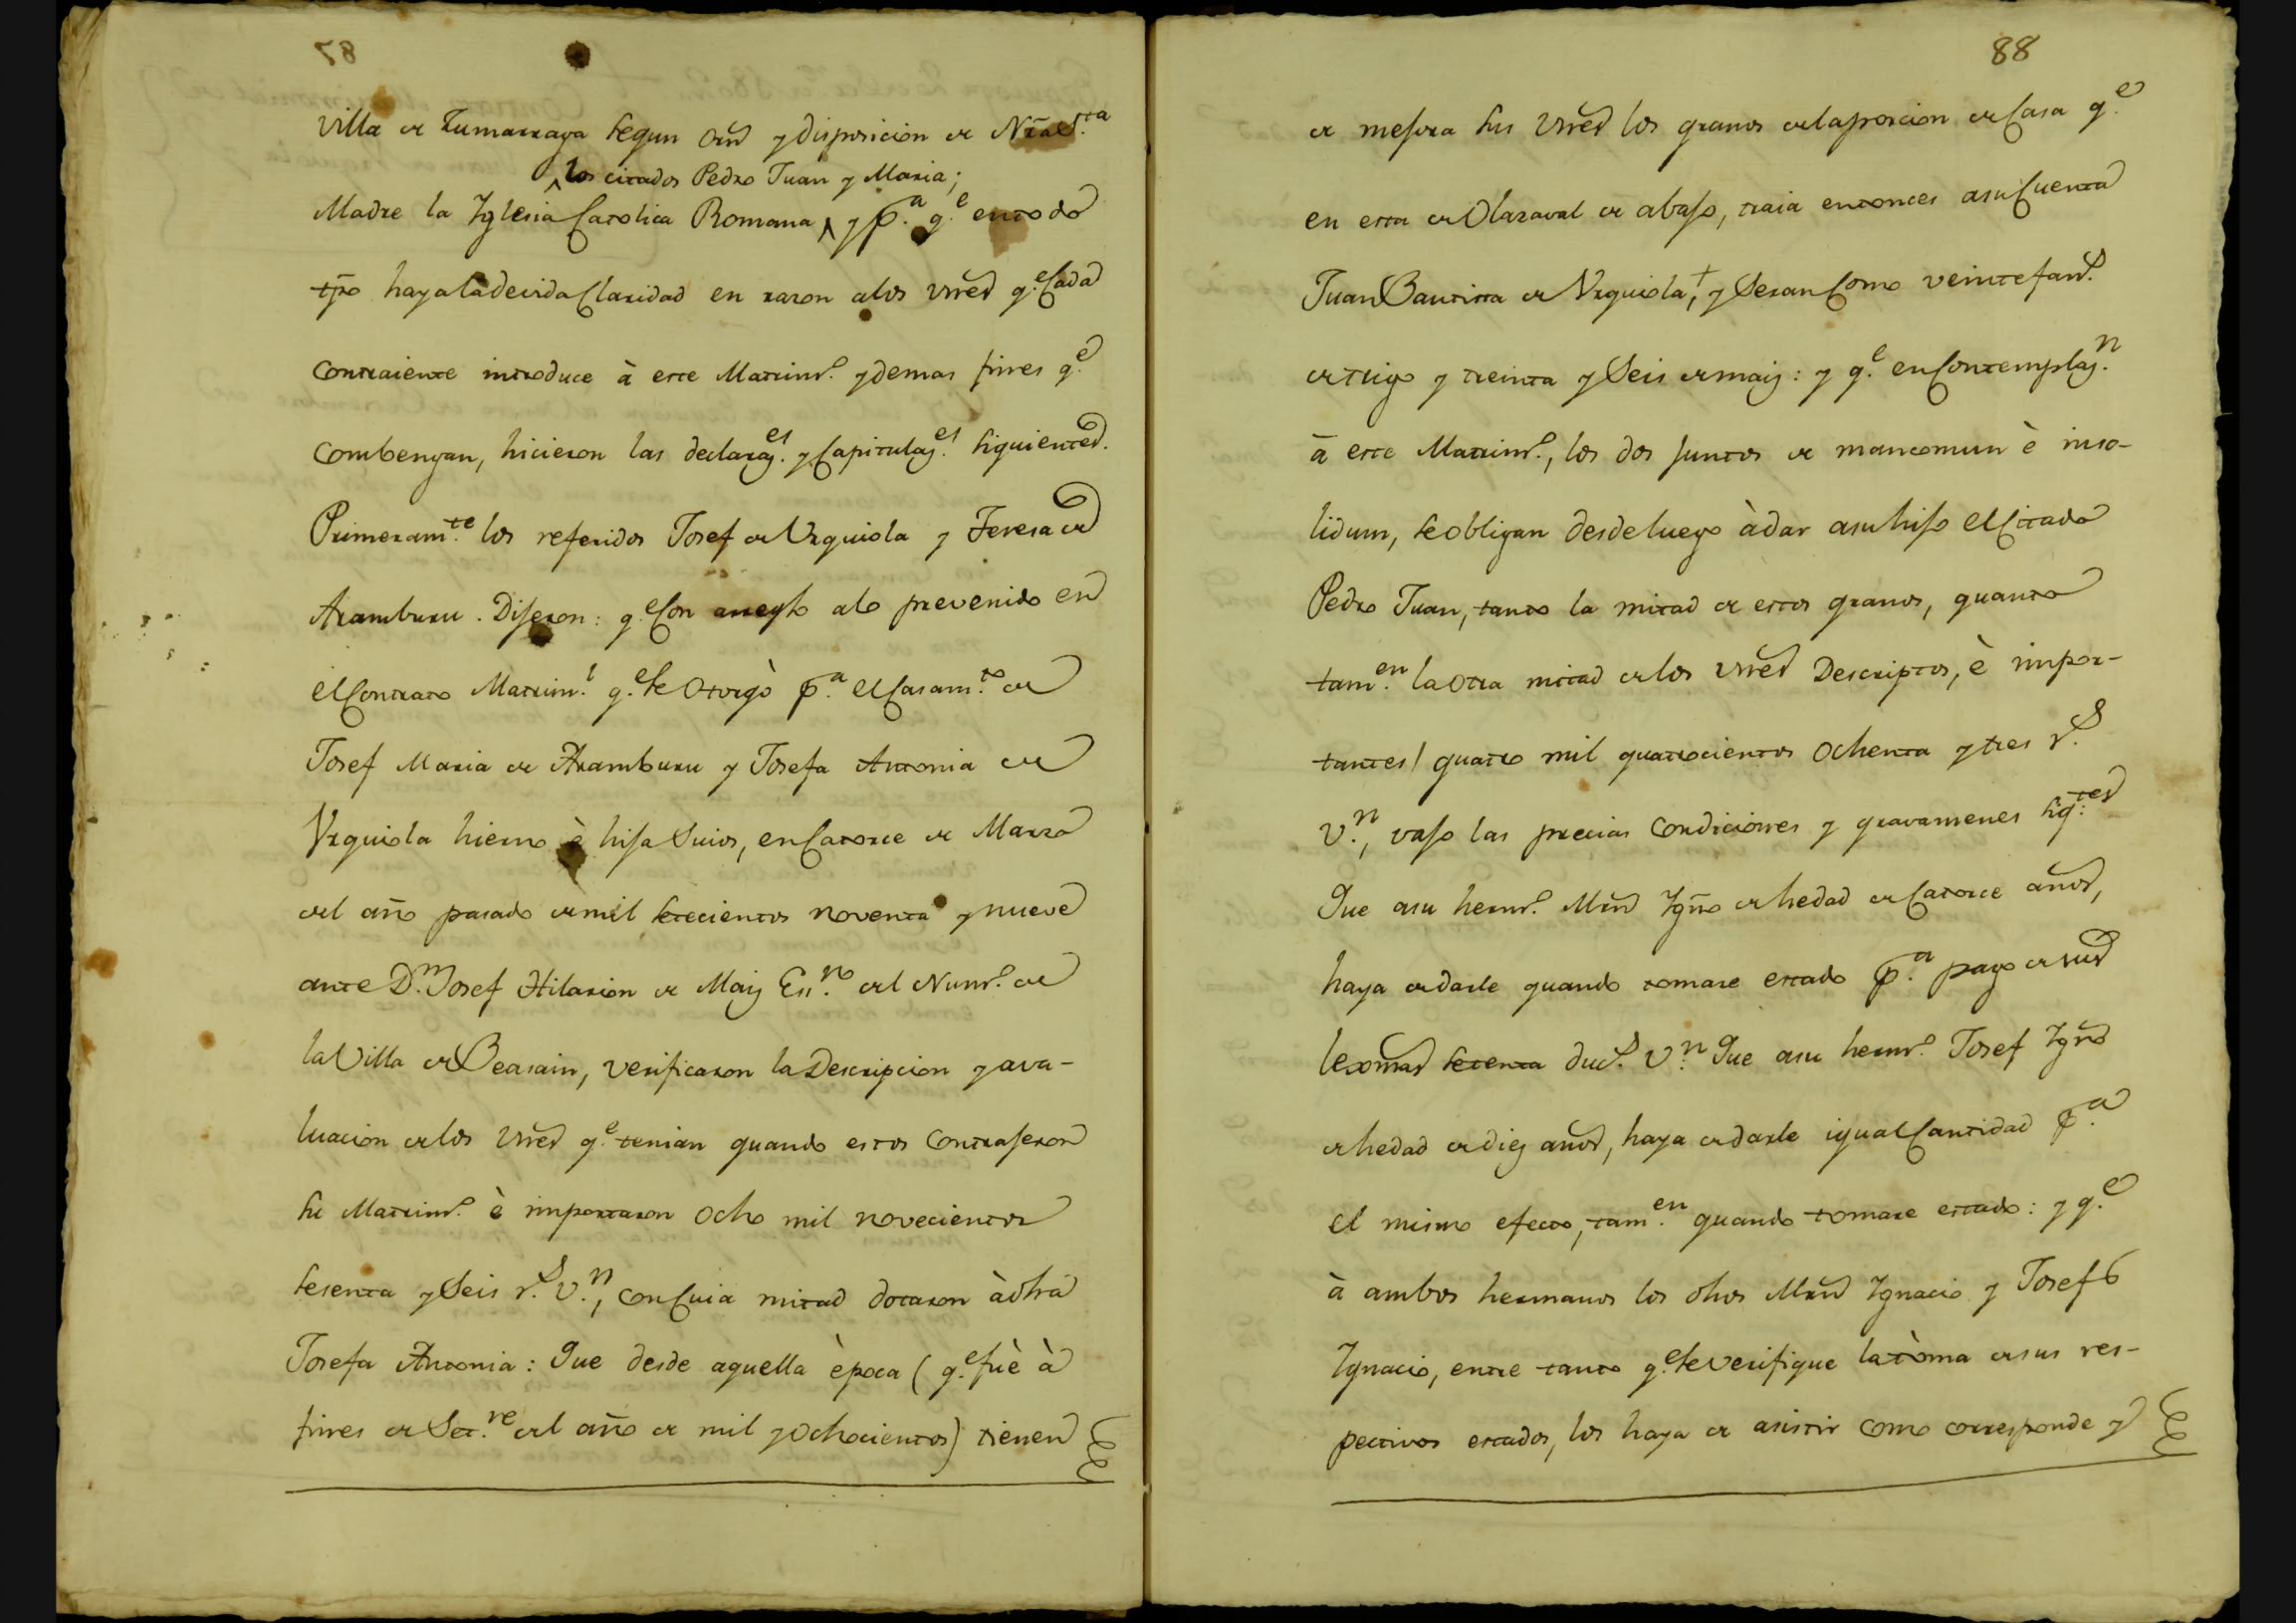 87
Villa de Zumarraga segun orñ y disposicion de Nr̃a S.ta
los citados Pedro Juan y Maria;
Madre la Yglesia Catolica Romana, y p.a q.e en todo
tp̃o haya la devida Claridad en razon a los vnes q.e Cada
Contraiente introduce à este Matrim.o y demas fines q.e
Combengan, hicieron las declaraz.es y Capitulaz.es siguientes.
Primeram.te los referidos Josef de Urquiola y Teresa de
Aramburu. Dijeron: q.e Con arreglo a lo prevenido en
el Contrato Matrim.l q.e se Otorgò p.a el Casam.to de
Josef Maria de Aramburu y Josefa Antonia de
Urquiola hierno è hija Suios, en Catorce de Marzo
del año pasado de mil setecientos noventa y nueve
ante D.n Josef Hilarion de Maiz Es.no del Num.o de
la Villa de Beasain, verificaron la Descripcion y ava-
luacion de los vnes q.e tenian quando estos Contrajeron
su Matrim.o è importaron Ocho mil novecientos
sesenta y Seis r.s v.n, con Cuia mitad dotaron à dh̃a
Josefa Antonia: Que desde aquella època (q.e fuè à
fines de Set.re del año de mil y Ochocientos) tienen
88
de mejora sus vnes los granos de la porcion de Casa q.e
en esta de Olazaval de abajo, traia entonces a su Cuenta
Juan Bautista de Urquiola,+ y Seran Como veinte fan.s
de trigo y treinta y Seis de maiz: y q.e en Contemplaz.n
à este Matrim.o, los dos Juntos de mancomun è inso-
lidum, se obligan desde luego à dar a su hijo el Citado
Pedro Juan, tanto la mitad de estos granos, quanto
tam.en la otra mitad de los vnes Descriptos, è impor-
tantes/ quatro mil quatrocientos Ochenta y tres r.s
v.n, vajo las precias Condiciones y gravamenes sig.tes
Que a su herm.o Mrñ Ygñ.o de hedad de Catorce años,
haya de darle quando tomare estado p.a pago de sus
lexmas setenta duc.s v.n Que a su herm.o Josef Ygñ.o
de hedad de diez años, haya de darle igual Cantidad p.a
el mismo efecto, tam.en quando tomare estado: y q.e
à ambos hermanos los dhos Mrñ Ygnacio y Josef
Ygnacio, entre tanto q.e se verifique la tòma de sus res-
pectivos estados, los haya de asistir como corresponde y